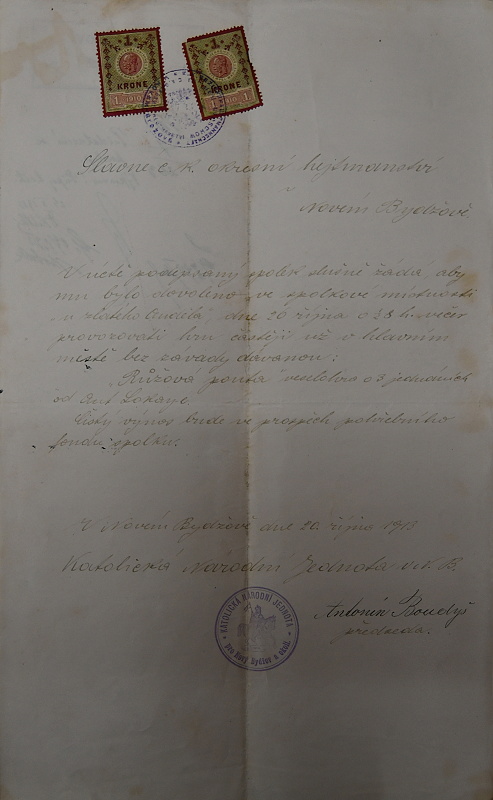 1 KRONE 1
1910
1 KRONE 1
1910
Slavné c. k. okresní hejtmanství
v Novém Bydžově
V úctě podepsaný spolek slušně žádá, aby
mu bylo dovoleno ve spolkové místnosti
"u zlatého anděla", dne 26 října o 8 h. večer
provozovati hru častěji už v hlavním
městě bez závady dávanou:
"Růžová pouta" veselohra o 3 jednáních
od Ant. Lokaye.
Čistý výnos bude ve prospěch potřebního
fondu spolku.
V Novém Bydžově dne 20. října 1913
Katolická Národní Jednota v N. B.
KATOLICKÁ NÁRODNÍ JEDNOTA
pro Nový Bydžov a okolí
Antonín Boudyš
předseda.